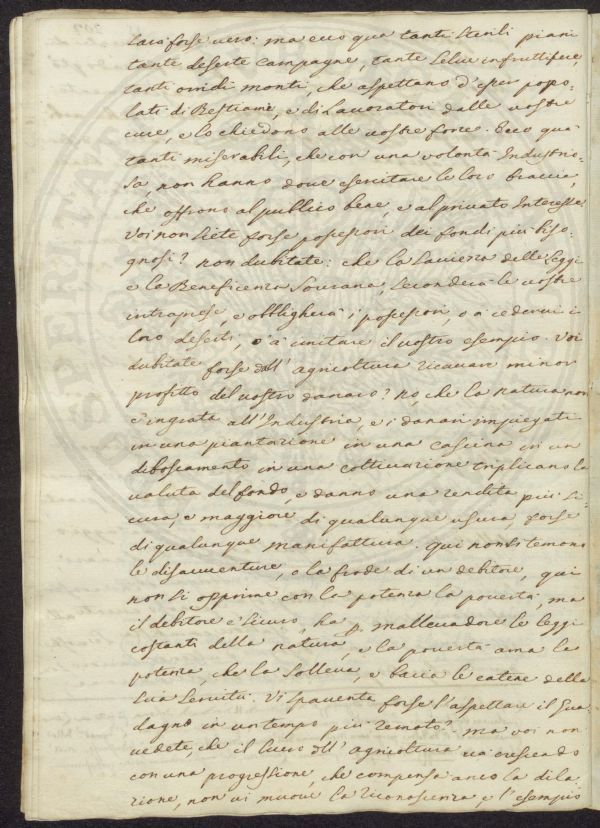 sarà forse vero: ma ecco qua tanti sterili piani
tante deserte campagne, tante selve infruttifere
tanti orridi monti, che aspettano d'esser popo-
lati di Bestiame, e di Lavoratori dalle vostre
cure, e lo chiedono alle vostre forze. Ecco qua
tanti miserabili, che con una volontà Industrio-
sa, non hanno dove esercitare le loro braccia,
che offrono al publico bene, e al privato Interesse
Voi non siete forse possessori dei fondi più biso-
gnosi? non dubitate: che la Saviezza delle Leggi
e la Beneficenza Sovrana, seconderà le vostre
intraprese, e obbligherà i possessori, o a cedervi i
loro deserti, o a imitare il vostro esempio. Voi
dubitate forse dall' agricoltura ricavare minor
profitto del vostro danaro? no, che la natura non
è ingrata all'Industria, e i danari impiegati
in una piantazione in una cascina in un
diboscamento in una coltivazione triplicano la
valuta del fondo, e danno una rendita più si-
cura, e maggiore di qualunque usura, forse
di qualunque manifattura. Qui non si temono
le disavventure, o la frode di un debitore, qui
non si opprime con la potenza la povertà, ma
il debitore è sicuro, ha p mallevadore le leggi
costanti della natura, e la povertà ama la
potenza, che la solleva, e bacia le catene della
sua servitù. Vi spaventa forse l'aspettare il Gua-
dagno in un tempo più remoto? ma voi non
vedete, che il lucro dell' agricoltura va crescendo
con una progressione, che compensa anco la dila-
zione, non vi muove la riconoscenza, e l'esempio